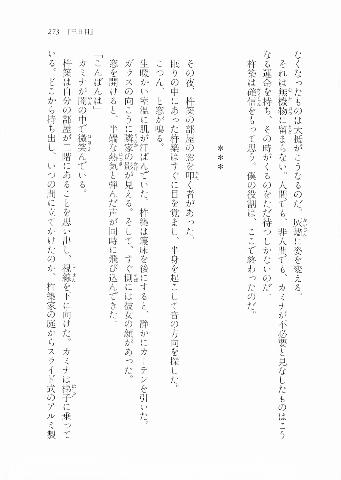 273　【三日目】
なくなったものは大抵がこうなるのだ。灰燼に姿を変える。
それは無機物に留まらない。人間でも、非人間でも、カミナが不必要と見なしたものはこう
なる運命を持ち、その時がくるのをただ待つしかないのだ。
杵築は確信をもって思う。僕の役割は、ここで終わったのだ。
＊＊＊
その夜、杵築の部屋の窓を叩く者があった。
眠りの中にあった杵築はすぐに目を覚まし、半身を起こして音の方向を探した。
こつん、と窓が鳴る。
生暖かい室温に肌が汗ばんでいた。杵築は寝床を後にすると、静かにカーテンを引いた。
ガラスの向こうに隣家の影が見える。そして、すぐ側には彼女の顔があった。
窓を開けると、半端な熱気と弾んだ声が同時に飛び込んできた。
「こんばんは」
カミナが闇の中で微笑んでいる。
杵築は自分の部屋が二階にあることを思い出し、視線を下に向けた。カミナは梯子に乗って
いる。どこから持ち出し、いつの間に立てかけたのか、杵築家の庭からスライド式のアルミ製